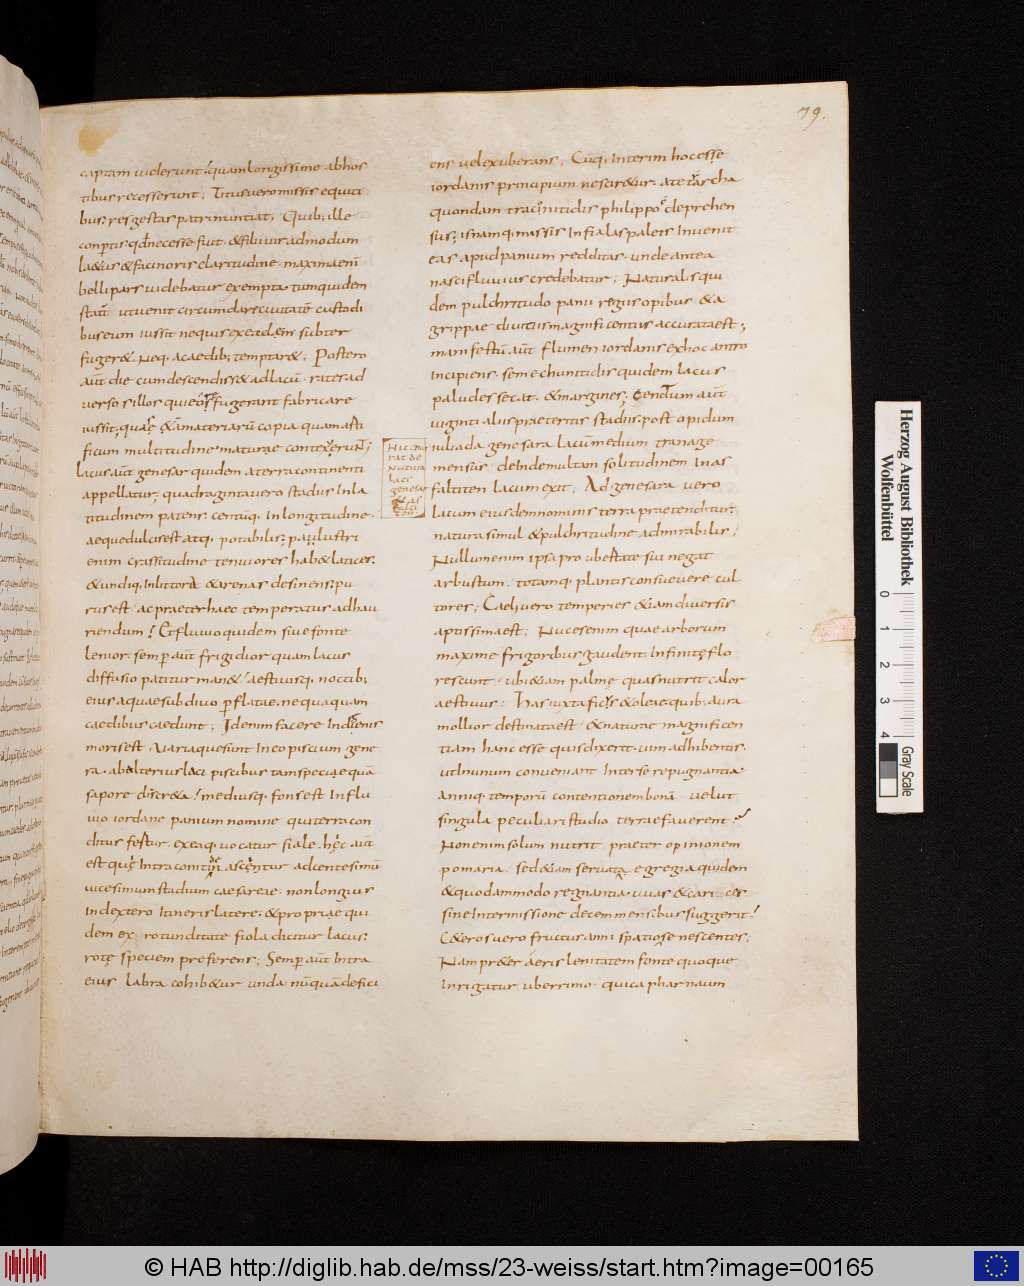 79.
captam uiderunt! quam longissime ab hos
tibus recesserunt; Titus uero missis equiti
bus; res gestas patri nuntiat; Quib; ille
necesse fuit. & filii uis admodum
l&us & facinoris claritudine. maxima enī
belli pars uidebatur exempta. tumquidem
statī ut uenit circumdare ciuitatē custodi
bus eum iussit nequis ex ea clam subter
fuger&. Neq. a caedib; temperar&; Postero
aūt die cum descendiss& ad lacū. rates ad
uerso s illos qui eo fugerant fabricare
iussit; quae & ā materiarū copia quam arti
ficum multitudine mature contexerunt;
Lacus aūt genesar quidem a terra continenti
appellatur; quadraginta uero stadiis In la
titudinem patens. centūq. In longitudine.
aeque dulcis est atq. potabilis; palustri
enim crassitudine tenuiores hab& latices.
& undiq. In littora & arenas desinens; pu
rus est. ac praeter haec temperatus ad hau
riendum! Et fluuio quidem siue fonte
lenior. semp aūt frigidior quam lacus
diffusio patitur man&! aestiuisq. noctib;
eius aquae sub diuo pflatae. nequaquam
caedibus caedunt; Idem facere Indigenis
moris est. Variaque sunt In eo piscium gene
ra. ab alterius laci piscibus tam specie quā
sapore discr&a! mediusq. fons est In flu
uio iordane panium nomine qui terra con
ditus fertur. ex ea q. uocatur fiale. hęc aūt
est Intra ascentur ad centesimū
uicesimum stadium caesareae. non longius
In dextero Itineris latere. & propriae qui
dem ex rotunditate fiola dicitur lacus;
rotę speciem preferens; Semp aūt Intra
eius labra cohib&ur unda nūquā defici
Hic nar
rat de
natura
laci
genesar
ens uel exuberans; Cūq. Interim hoc esse
iordanis principium nescir&ur. a tetrarcha
quondam traconitidis philippo deprehen
sus; is namq. missis In fialas paleis Inuenit
eas apud panium redditas. unde antea
nasci fluuius credebatur; Naturalis qui
dem pulchritudo panii regis opibus & a
grippae diuitiis magnificentius accurata est;
manifestū aūt flumen iordanis ex hoc antro
Incipiens. semechunitidis quidem lacus
paludes secat. & margines; Centum aūt
uiginti aliis praeteritis stadiis. post opidum
iuliada genesara lacū medium transge
mensus. deInde multam solitudinem In as
faltiten lacum exit; Ad genesara uero
lacum eiusdem nominis terra praetenditur;
natura simul & pulchritudine admirabilis;
Nullum enim ipsa pro ubertate sui negat
arbustum. totamq. plantis consueuere cul
tores; Caeli uero temperies & iam diuersis
aptissima est; Nuces enim quae arborum
maxime frigoribus gaudent. Infinitę flo
rescunt. ubi & iam palmę quas nutrit calor
aestiuus; has iuxta ficis & oleae quib; aura
mollior destinata est. & naturae magnificen
tiam hanc esse quis dixerit. uim adhibentis.
ut In unum conueniant Inter se repugnantia.
Anniq. temporū contentionem bonā uelut
singula peculiari studio terrae fauerent;
Non enim solum nutrit praeter opinionem
pomaria. sed & iam seruata egregia quidem
& quodammodo regnantia uuas & caricas
sine Intermissione decem mensibus suggerit!
C&eros uero fructus anni spatio se nescentes;
Nam pr&er aeris lenitatem fonte quoque
Inrigatur uberrimo. qui capharnaum
Herzog August Bibliothek
Wolfenbüttel
0 1 2 3 4
Gray Scale
© HAB http://diglib.hab.de/mss/23-weiss/start.htm?image=00165